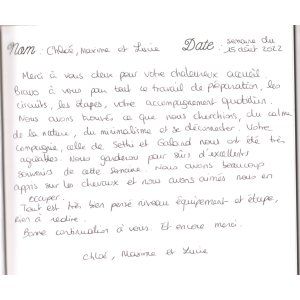 Nom : Chloé, Maxime et Lucie Date : semaine du
15 août 2022
Merci à vous deux pour votre chaleureux accueil
Bravo à vous pour tout ce travail de préparation, les
circuits, les étapes, votre accompagnement quotidien.
Nous avons trouvés ce que nous cherchions, du calme
de la nature, du minimalisme et se déconnecter. Votre
compagnie, celle de Sethi et Galland nous ont été très
agréables. Nous garderons pour sûrs d'excellents
souvenirs de cette semaine. Nous avons beaucoup
appris sur les chevaux et nous avons aimés nous en
occuper.
Tout est très bien pensé niveau équipement et étape,
rien à redire.
Bonne continuation à vous Et encore merci.
Chloé, Maxime et Lucie